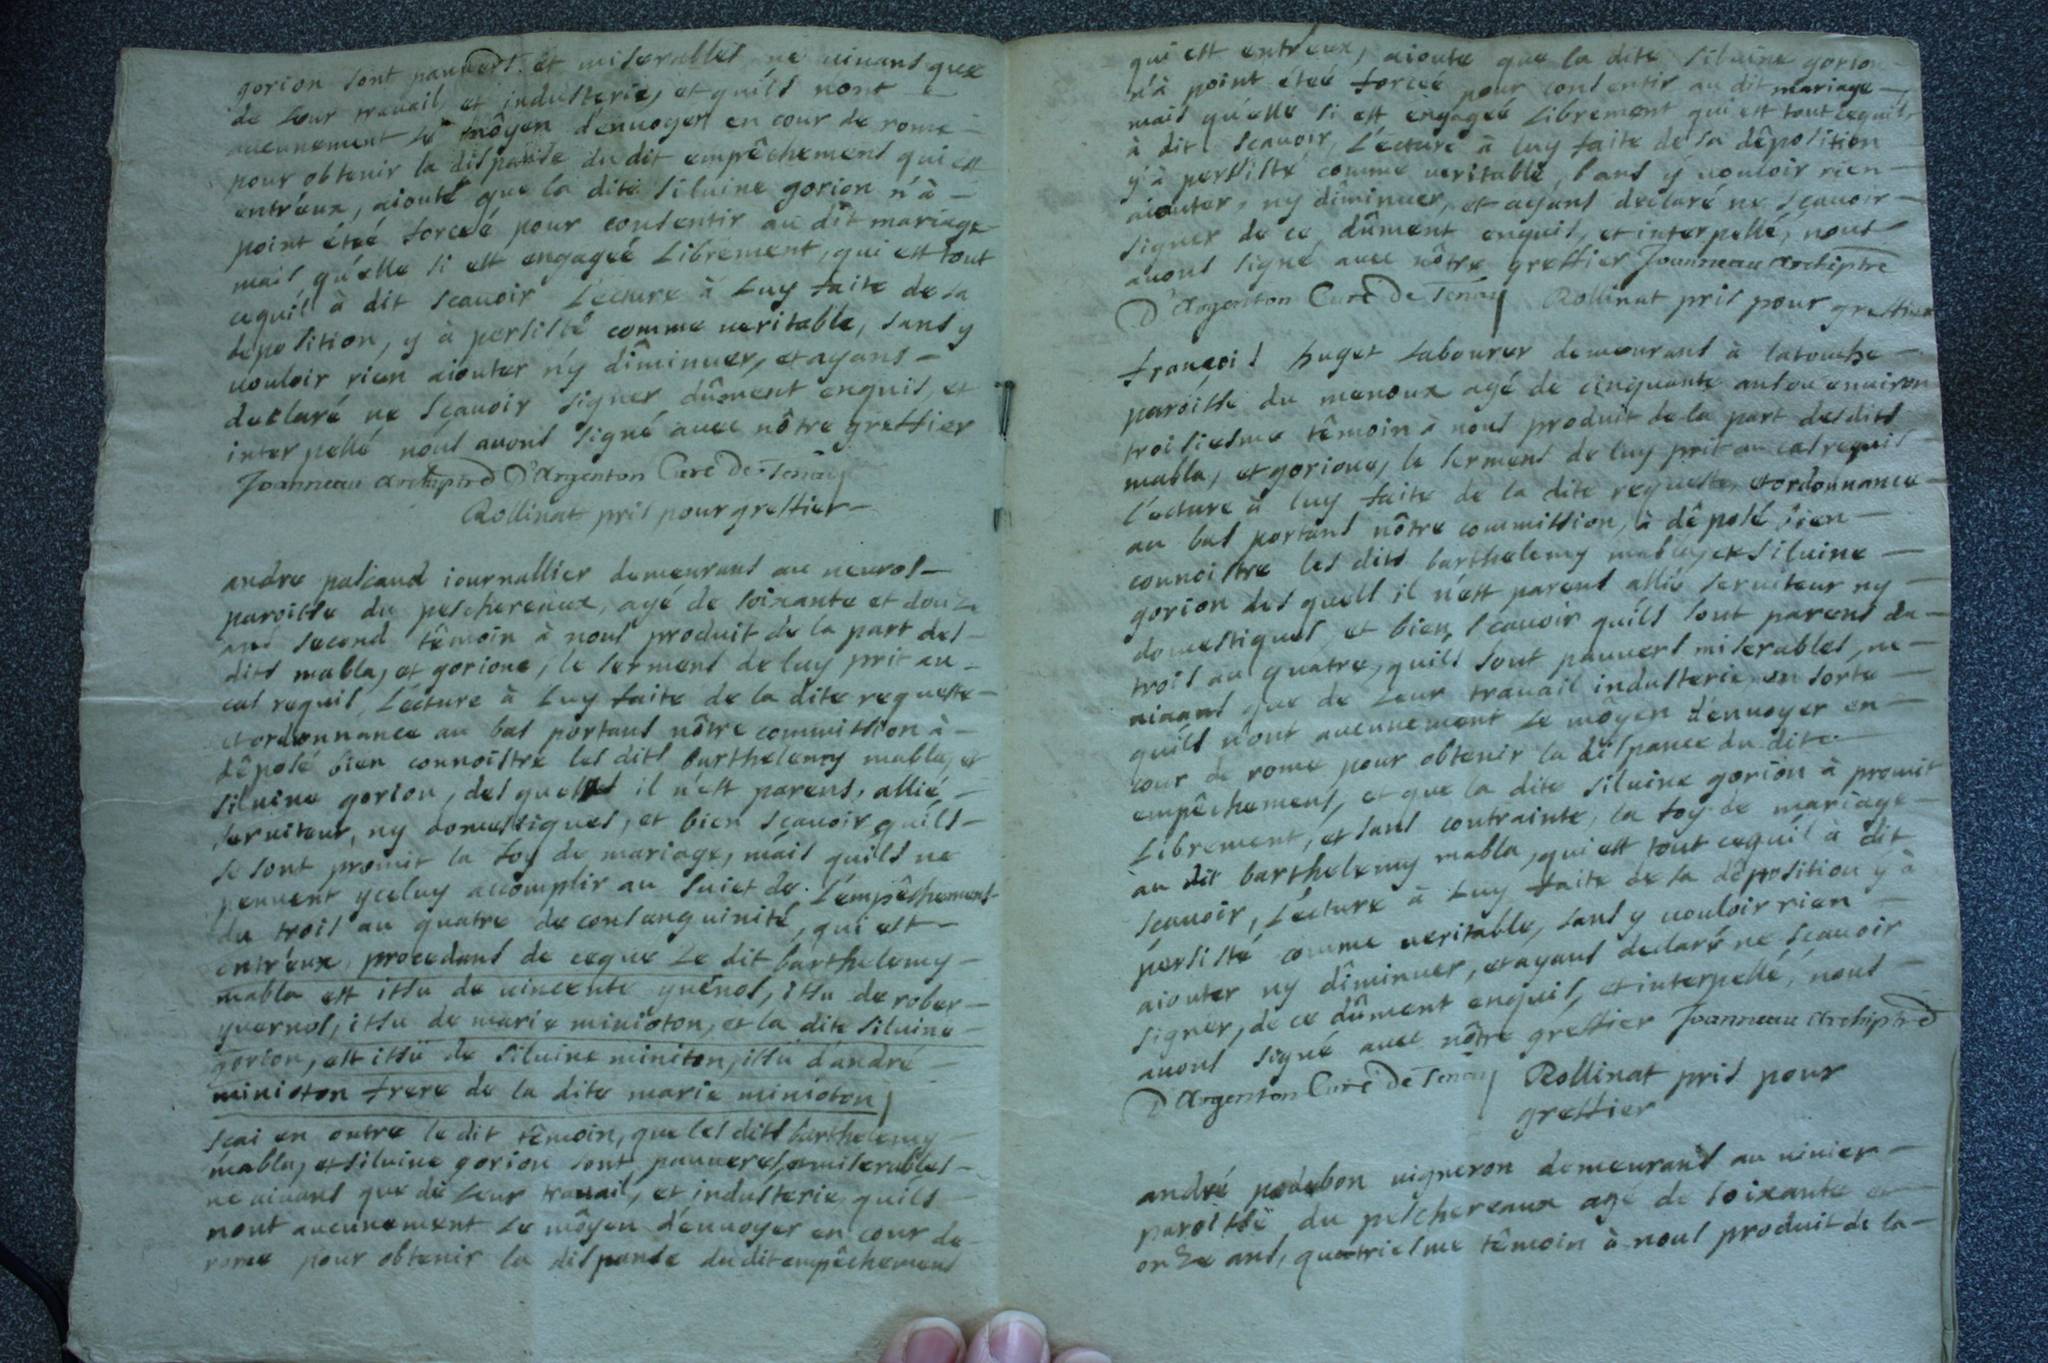 gorion sont pauvers et miserables ne vivans que
de leur travail, et industerie, et quils nont
aucunement le môyen d'envoyer en cour de rome
pour obtenir la dispanse du dit empêchement qui est
entr'eux, aioute que la dite siluine gorion n'à
point étée forcée pour consentir au dit mariage
mais qu'elle si est engagée Librement, qui est tout
cequil à dit scavoir Lecture à Luy faite de sa
deposition, y à persisté comme veritable, sans y
vouloir rien aiouter n'y diminuer, et ayans
declaré ne scavoir signer dûment enquis, et
interpellé nous avons signé avec nôtre greffier
Joanneau archiptre D'Argenton Curé De Tenay
Rollinat pris pour greffier
andre pascaud iournallier demeurans au neurol
paroisse du peschereaux, agé de soixante et douze
ans second têmoin à nous produit de la part des
dits mabla, et gorione, le serment de luy prit au
cas requis, Lecture à Luy faite de la dite requeste
et ordonnance au bas portans nôtre commission à
dêposé bien connoistre les dits barthelemy mabla, et
siluine gorion, des quels il n'est parens, allié
serviteur, ny domestiques, et bien scavoir quils
se sont promit la foy de mariage, mais quils ne
peuvent yceluy accomplir au suiet de L'empêchement
du trois au quatre de consanguinité, qui est
entr'eux, procedans de ceque Le dit barthelemy
mabla est issu de vincente yuernos, issu de rober
yuernos, issu de marie minioton, et la dite siluine
gorion, est issu de siluine miniton, issu d'andré
minioton frere de la dite marie minioton
scai en outre le dit têmoin, que les dits barthelemy
mabla, et siluine gorion sont pauveres, et miserables
ne vivans que de Leur travail, et industerie quils
nont aucunement Le môyen d'envoyer en cour de
rome pour obtenir la dispanse du dit empêchement
qui est entr'eux, aioute que la dite siluine gorion
n'à point étée forcée pour consentir au dit mariage
mais qu'elle si est engagée Librement qui est tout cequil
à dit scavoir, Lecture à luy faite de sa dêposition
y à persisté comme veritable, sans y vouloir rien
aiouter, ny diminuer, et ayans declaré ne scavoir
signer de ce dûment enquis, et interpellé, nous
avons signé avec nôtre greffier Joanneau Archiptre
D'Argenton Curé De Tenay Rollinat pris pour greffier
françois huget Labourer demeurans à latouche
paroisse du menoux agé de cinquante ans ou environ
troisiesme têmoin à nous produit de la part desdits
mabla, et gorione, le serment de luy prit au cas requis
Lecture à luy faite de la dite requeste, et ordonnance
au bas portans nôtre commission, à dêposé bien
connoistre les dits barthelemy mabla, et siluine
gorion des quels il n'est parens allié serviteur ny
domestiques, et bien scavoir quils sont parens du
trois au quatre, quils sont pauvers miserables, ne
vivans que de Leur travail industerie, en sorte
quils n'ont aucunement Le môyen d'envoyer en
cour de rome pour obtenir la dispance du dit
empêchement, et que la dite siluine gorion à promit
Librement, et sans contrainte, la foy de mariage
au dit barthelemy mabla, qui est tout cequil à dit
scavoir, Lecture à Luy faite de sa deposition y à
persisté comme veritable, sans y vouloir rien
aiouter ny diminuer, et ayans declaré ne scavoir
signer, de ce dûment enquis, et interpellé, nous
avons signé avec nôtre greffier Joanneau Archiptre
D'Argenton Curé De Tenay Rollinat pris pour
greffier
andré pedebon vigneron demeurans au vivier
paroisse du peschereaux agé de soixante et
onze ans, quatriesme têmoin à nous produit de la